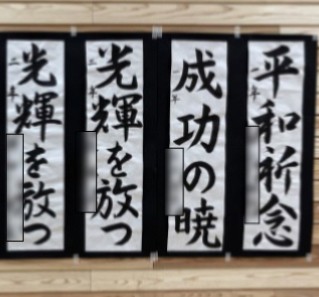 平和祈念
二年
成功の暁
二年
光輝を放つ
二年
光輝を放つ
二年